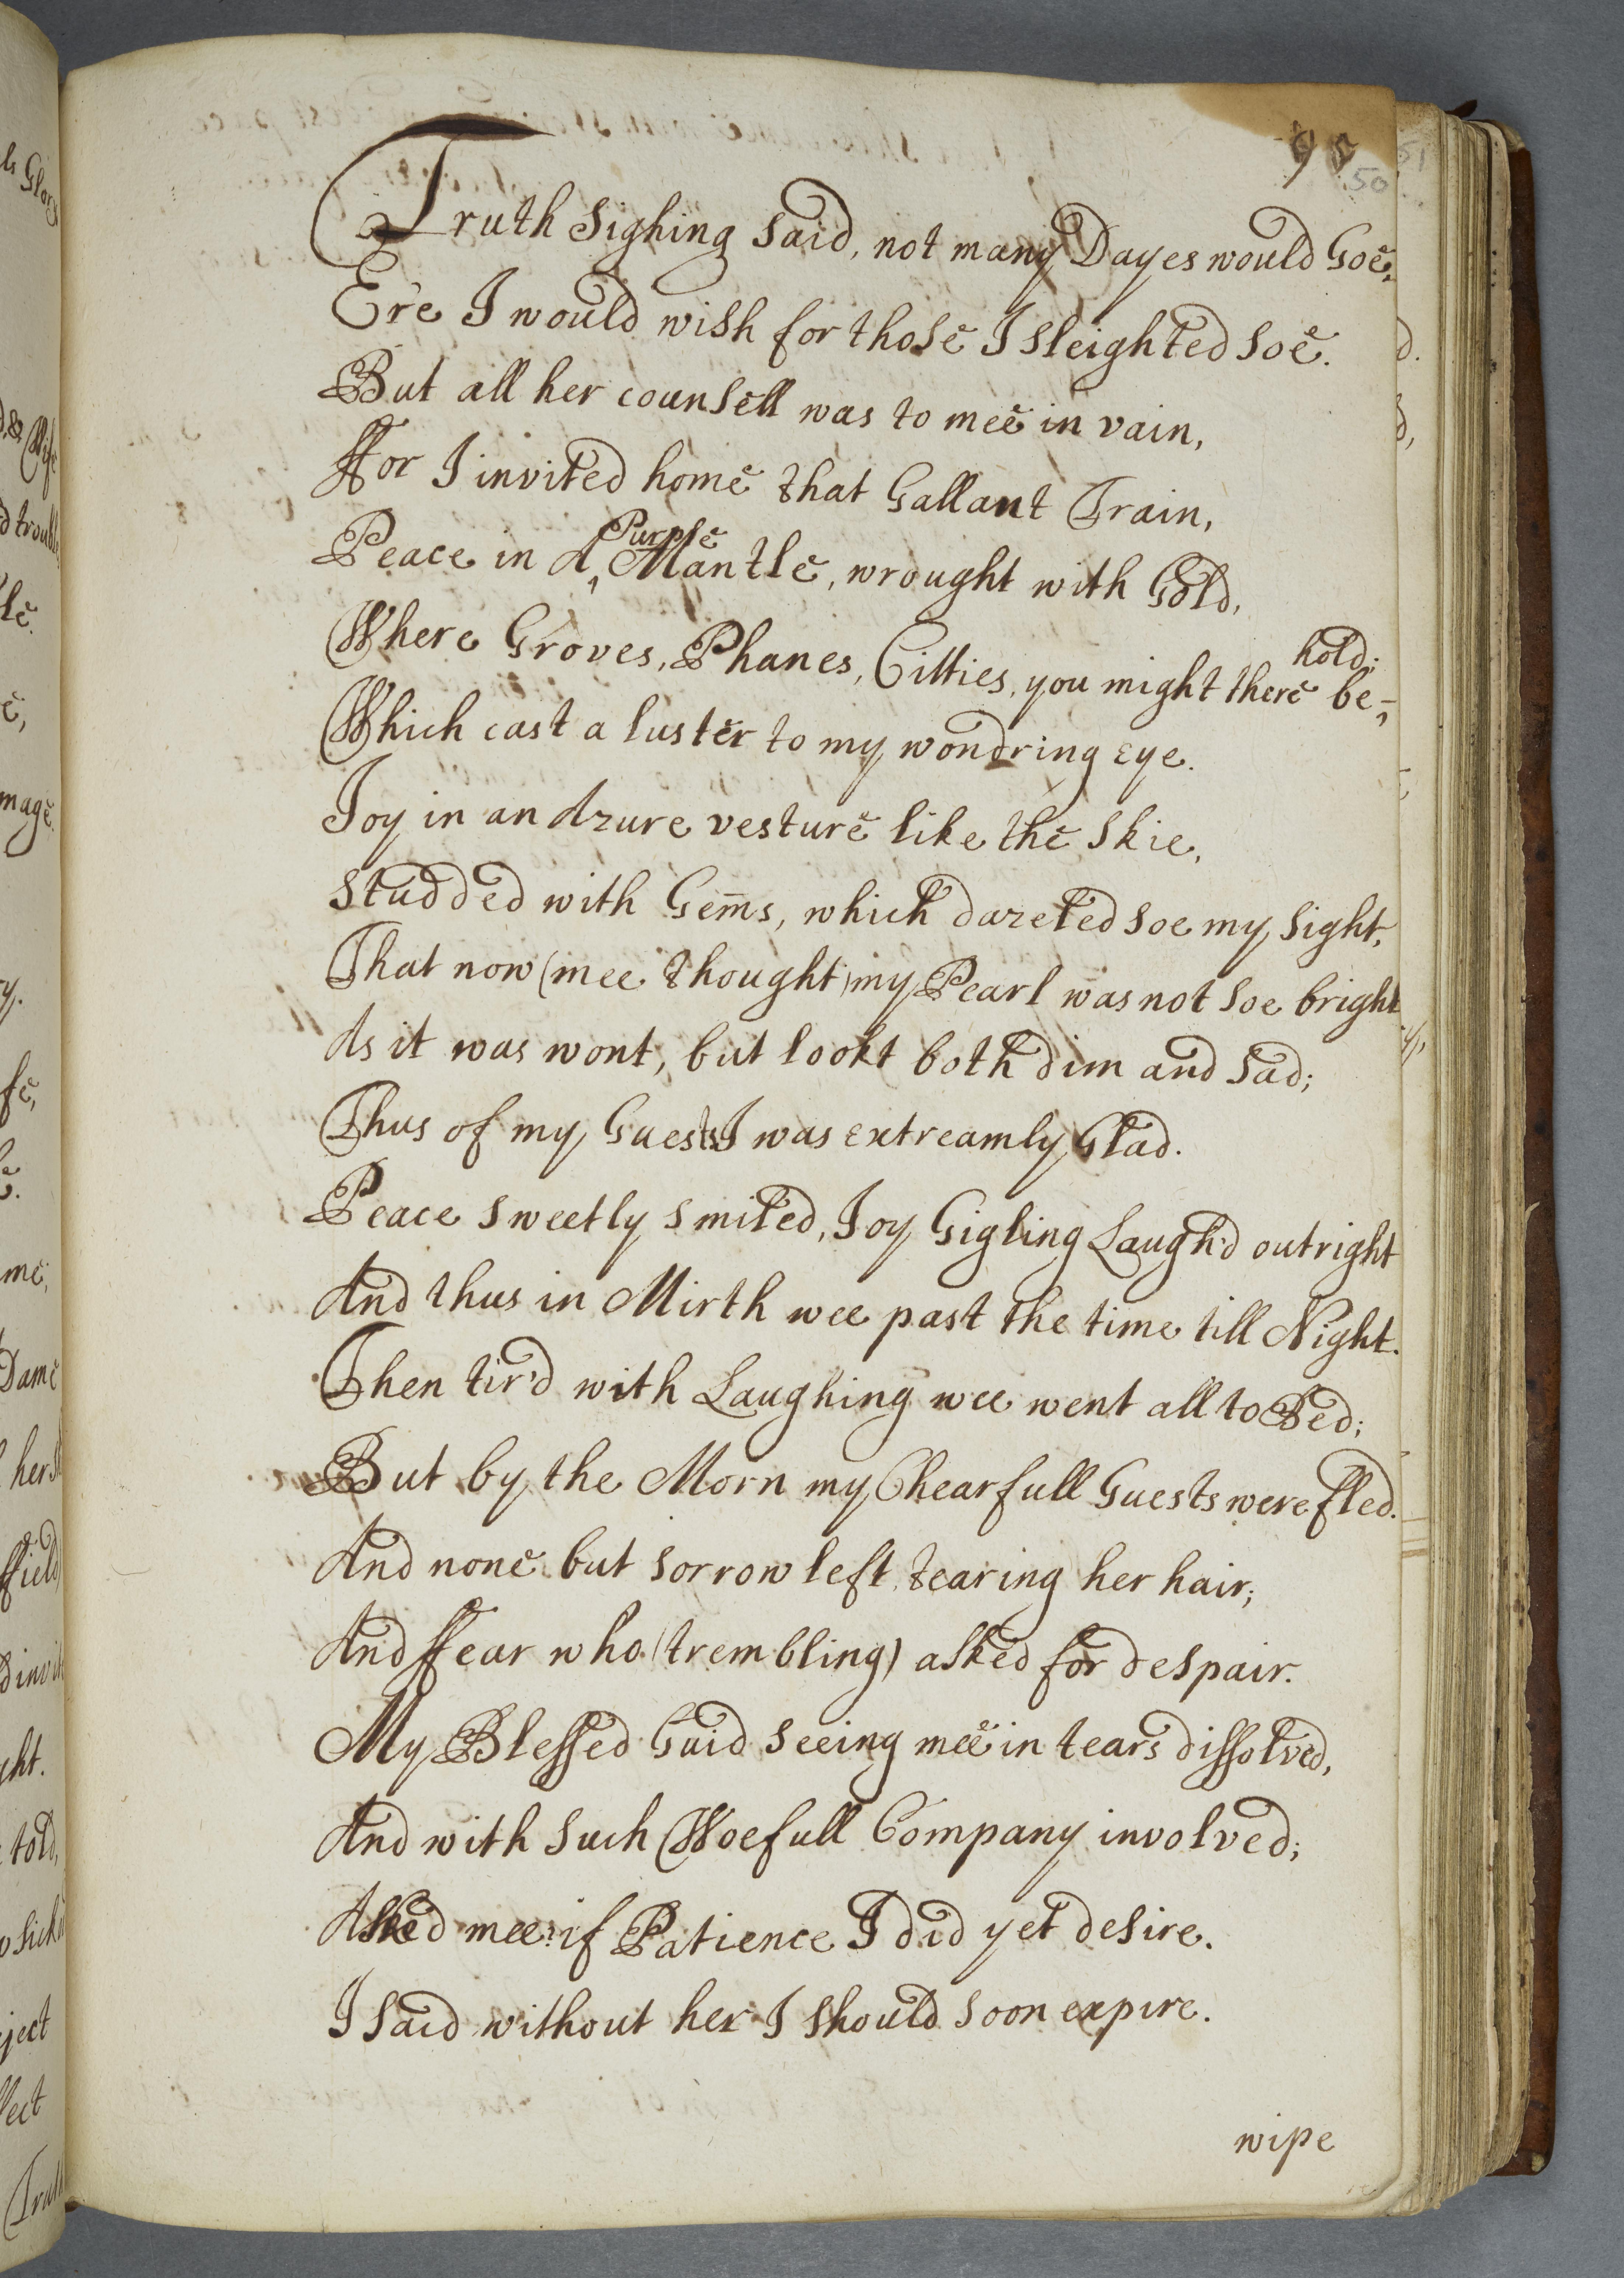 95
50
51
Truth Sighing Said, not many Dayes would Goe,
Ere I would wish for those I Sleighted Soe.
But all her counsell was to mee in vain,
ffor I invited home that Gallant Train,
Peace in A ^Purple Mantle, wrought with Gold,
Where Groves, Phanes, Citties, you might there be-^hold;
Which cast a luster to my wondring eye.
Joy in an Azure vesture like the Skie,
Studded with Gem̄s, which dazeled Soe my Sight,
That now (mee thought) my Pearl was not Soe bright
As it was wont, but lookt both dim and Sad;
Thus of my Guests I was extreamly Glad.
Peace Sweetly Smiled, Joy Gigling Laugh'd outright
And thus in Mirth wee past the time till Night.
Then tir'd with Laughing wee went all to Bed;
But by the Morn my Chearfull Guests were fled.
And none but Sorrow left, tearing her hair;
And ffear who (trembling) asked for despair.
My Blessed Guid Seeing mee in tears dissolved,
And with Such Woefull Company involved;
Asked mee if Patience I did yet desire.
I Said without her I Should Soon expire.
wipe